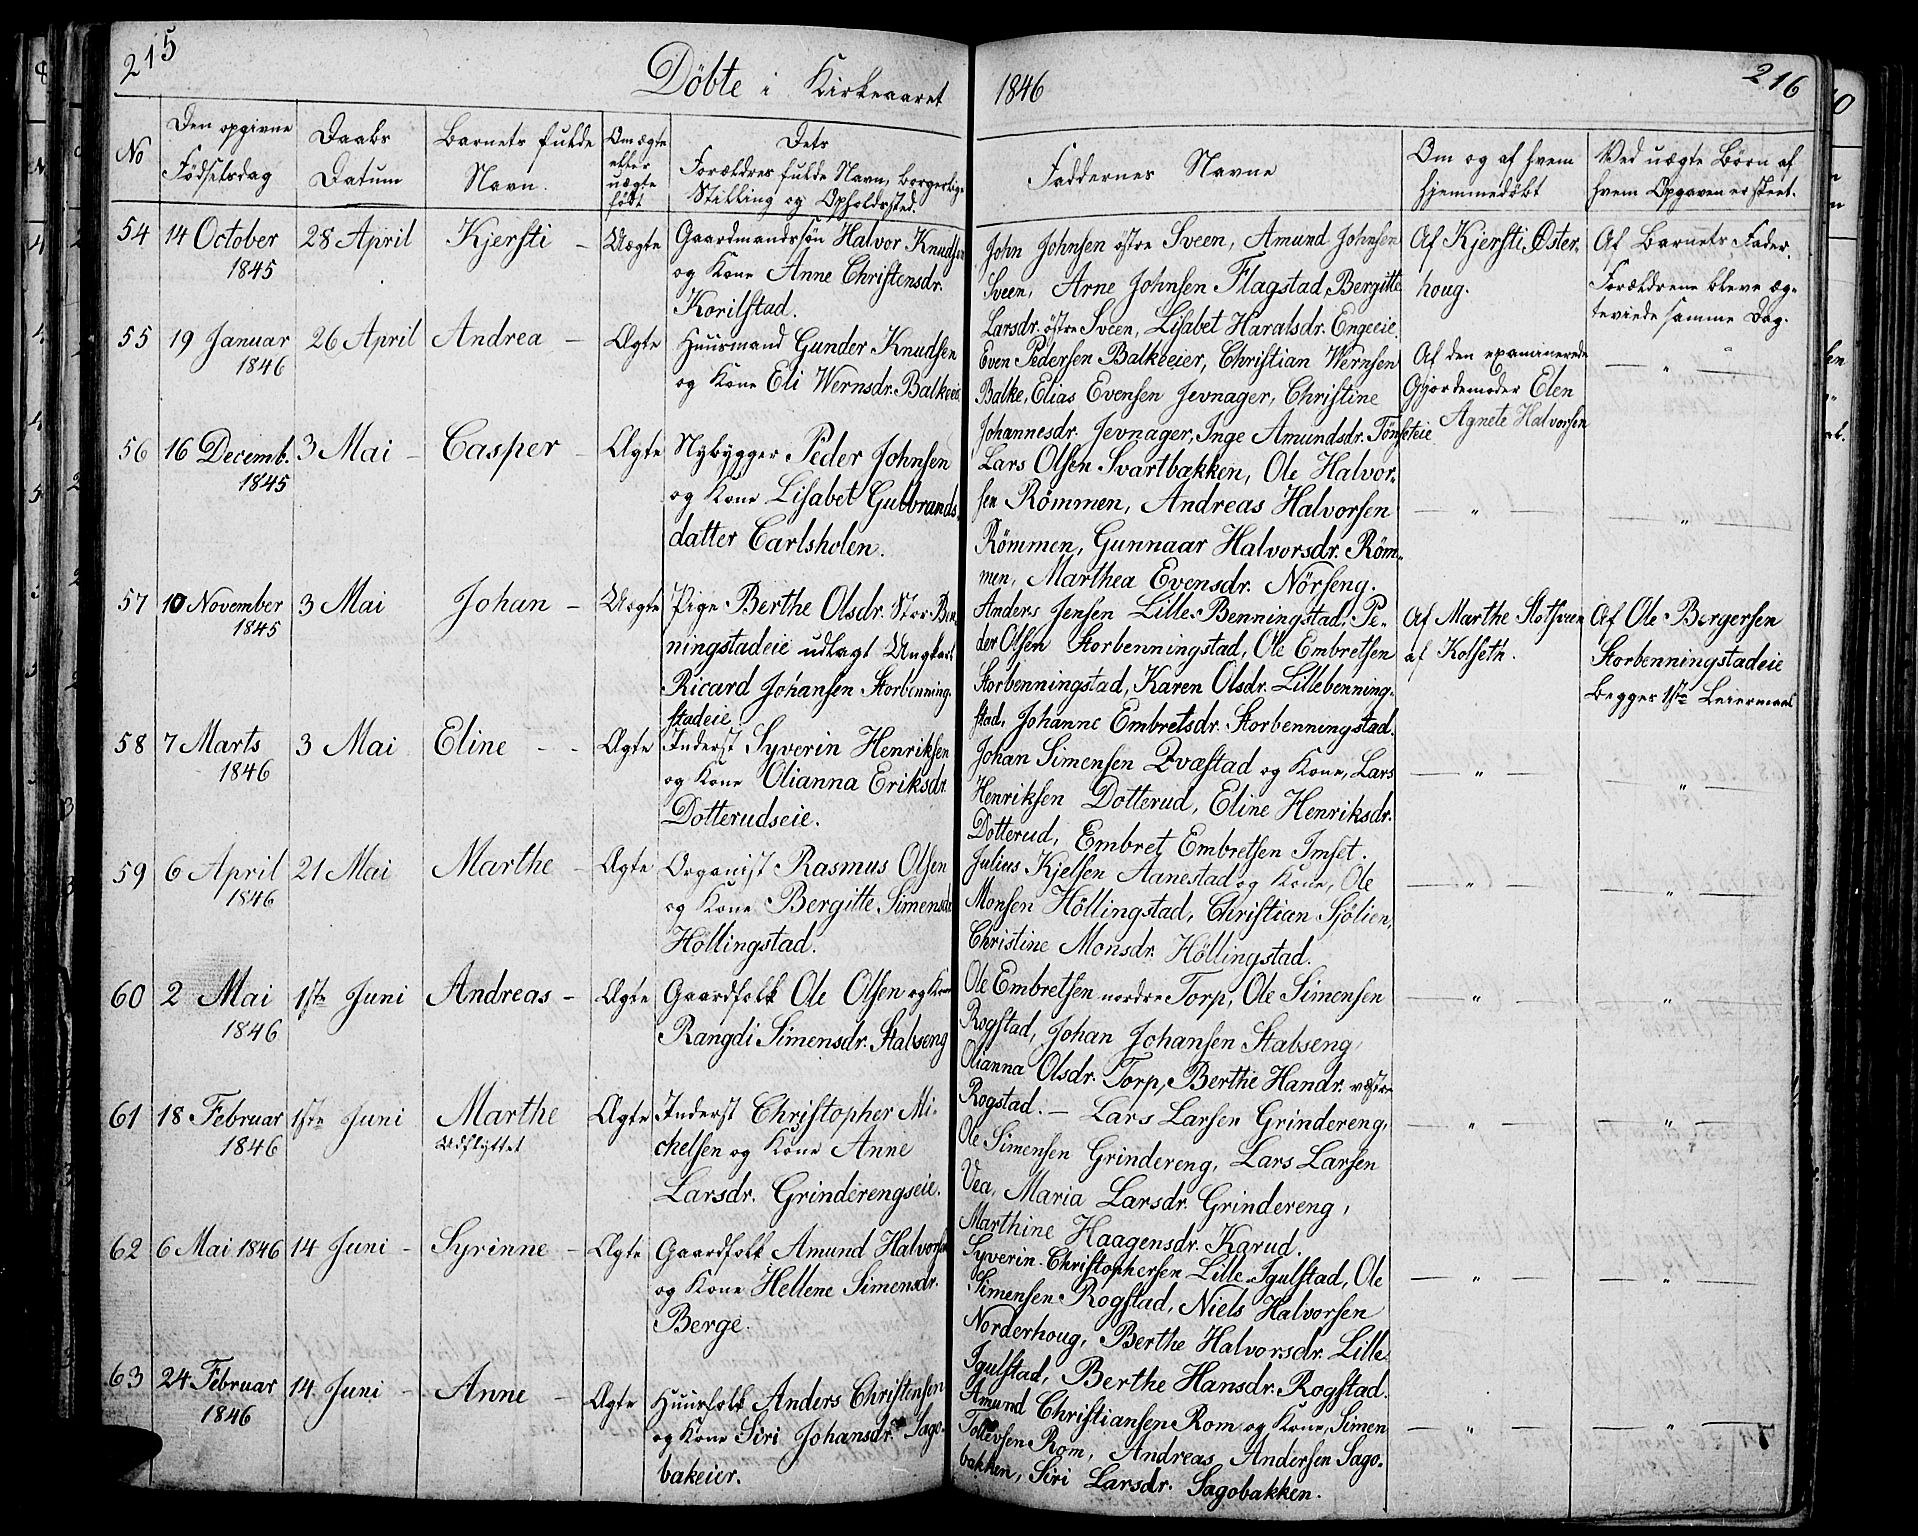 215
Döbte i Kirkeaaret
1846
216
No
Den opgivne
Födselsdag
Daabs
Datum
Barnets fulde
Navn.
Om ægte
eller
uægte
født
Dets
Forældres fulde Navn, borgerlige
Stilling og Opholdssted.
Faddernes Navne
Om og af hvem
hjemmedöbt
Ved uægte Börn af
hvem Opgaven er skeet.
54 14 October 28 April Kjersti - Uægte Gaardmandssön Halvor Knudsen
1845
og Kone Anne Christensdr.
Korilstad.
John Johnsen östre Sveen, Amund Johnsen
Sveen, Arne Johnsen Flagstad, Bergitte
Larsdr. östre Sveen, Lisabet Haralsdr. Engeeie
Af Kjersti Öster-
houg.
Af Barnets Fader.
Forældrene bleve æg-
teviede samme Dag.
55 19 Januar 26 April Andrea - Ægte Huusmand Gunder Knudsen
1846
og Kone Eli Wernsdr. Balkeeie
Even Pedersen Balkeeier, Christian Wernsen
Balke, Elias Evensen Jevnager, Christine
Johannesdr. Jevnager, Inge Amundsdr. Tönseteie
Af den examinerede
Gjordemoder Elen
Agnete Halvorsen
— " —
56 16 Decemb. 3 Mai - Casper - Ægte Nybygger Peder Johnsen
1845
og Kone Lisabet Gulbrands
datter Carlsholen.
Lars Olsen Svartbakken, Ole Halvor-
sen Römmen, Andreas Halvorsen
Römmen, Gunnaar Halvorsdr. Röm-
men, Marthea Evensdr. Nörseng.
— " —
— " —
57 10 November 3 Mai Johan - Uægte Pige Berthe Olsdr. Stor Ben
1845
ningstadeie udlagt Ungkarl
Ricard Johansen Storbenning-
stadeie
Anders Jensen Lille-Benningstad, Pe-
der Olsen Storbenningstad, Ole Embretsen
Storbenningstad, Karen Olsdr. Lillebenning-
stad, Johanne Embretsdr. Storbenningstad.
Af Marthe Slotsveen
af Kolseth.
Af Ole Bergersen
Storbenningstadeie
Begges 1ste Leiermaal
58 7 Marts 3 Mai Eline - - Ægte Inderst Syverin Henriksen
1846
og Kone Olianna Eriksdr
Dotterudseie.
Johan Simensen Qvæstad og Kone, Lars
Henriksen Dotterud, Eline Henriksdr.
Dotterud, Embret Embretsen Imset.
— " —
— " —
59 6 April 21 Mai Marthe - Ægte Organist Rasmus Olsen
1846
og Kone Bergitte Simensdr
Höllingstad.
Julius Kjelsen Aanestad og Kone, Ole
Monsen Höllingstad, Christian Sjölien,
Christine Monsdr. Höllingstad.
— " —
— " —
60 2 Mai 1ste Juni Andreas - Ægte Gaardfolk Ole Olsen og Kone
1846
Rangdi Simensdr. Stabseng
Ole Embretsen nordre Torp, Ole Simensen
Rogstad, Johan Johansen Stabseng,
Olianna Olsdr. Torp, Berthe Handr. vestre
Rogstad. —
— " —
— " —
61 18 Februar 1ste Juni Marthe - Ægte Inderst Christopher Mi-
1846
Udflyttet
chelsen og Kone Anne
Larsdr. Grinderengseie.
Lars Larsen Grindereng,
Ole Simensen Grindereng, Lars Larsen
Vea, Maria Larsdr. Grindereng,
Marthine Haagensdr. Karud.
— " —
— " —
62 6 Mai 1846 14 Juni - Syrinne - Ægte Gaardfolk Amund Halvorsen
og Kone Hellene Simensdr.
Berge.
Syverin Christophersen Lille-Igulstad, Ole
Simensen Rogstad, Niels Halvorsen
Norderhoug, Berthe Halvorsdr. Lille-
Igulstad, Berthe Hansdr. Rogstad.
— " —
— " —
63 24 Februar 14 Juni - Anne - Ægte Huusfolk Anders Christensen
1846
og Kone Siri Johansdr. Sago-
bakeier.
Amund Christiansen Rom og Kone, Simen
Tollevsen Rom, Andreas Andersen Sago-
bakken, Siri Larsdr. Sagobakken.
— " —
— " —